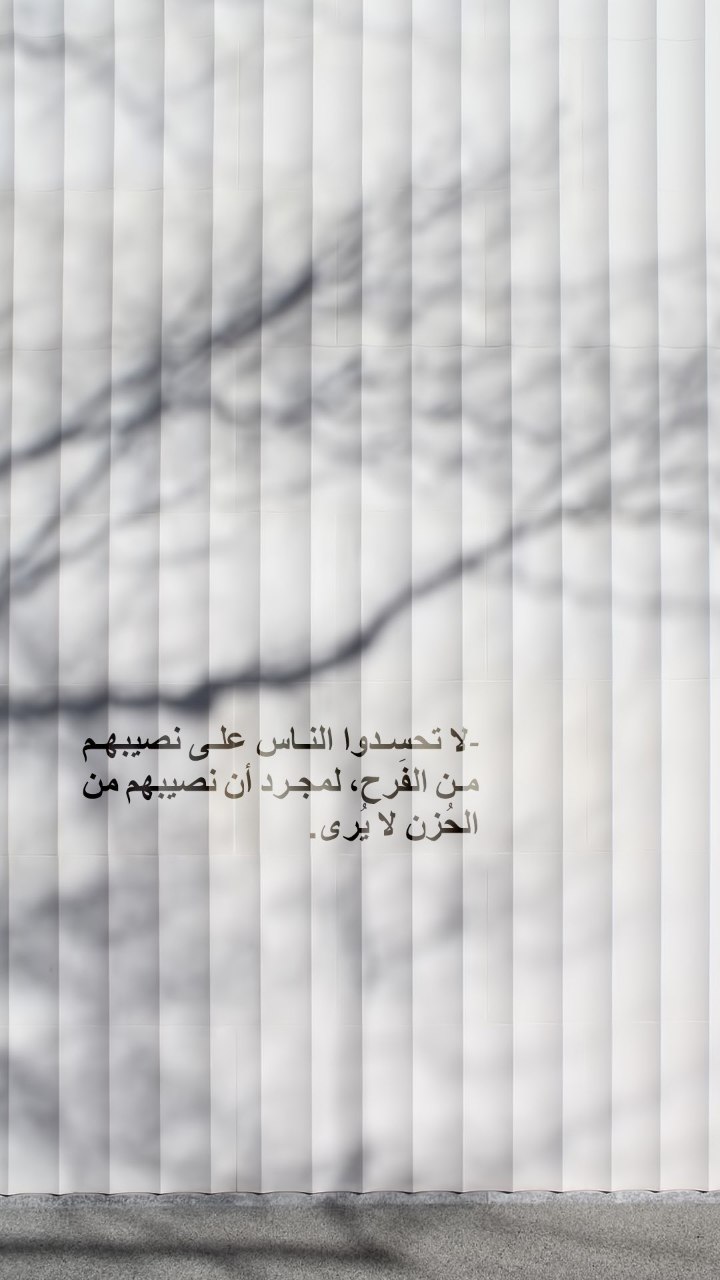 -لا تحسِدوا النـاس علـى نصيبهـم
مـن الفَرح، لمجـرد أن نصيبهم من
الحُزن لا يُرى.